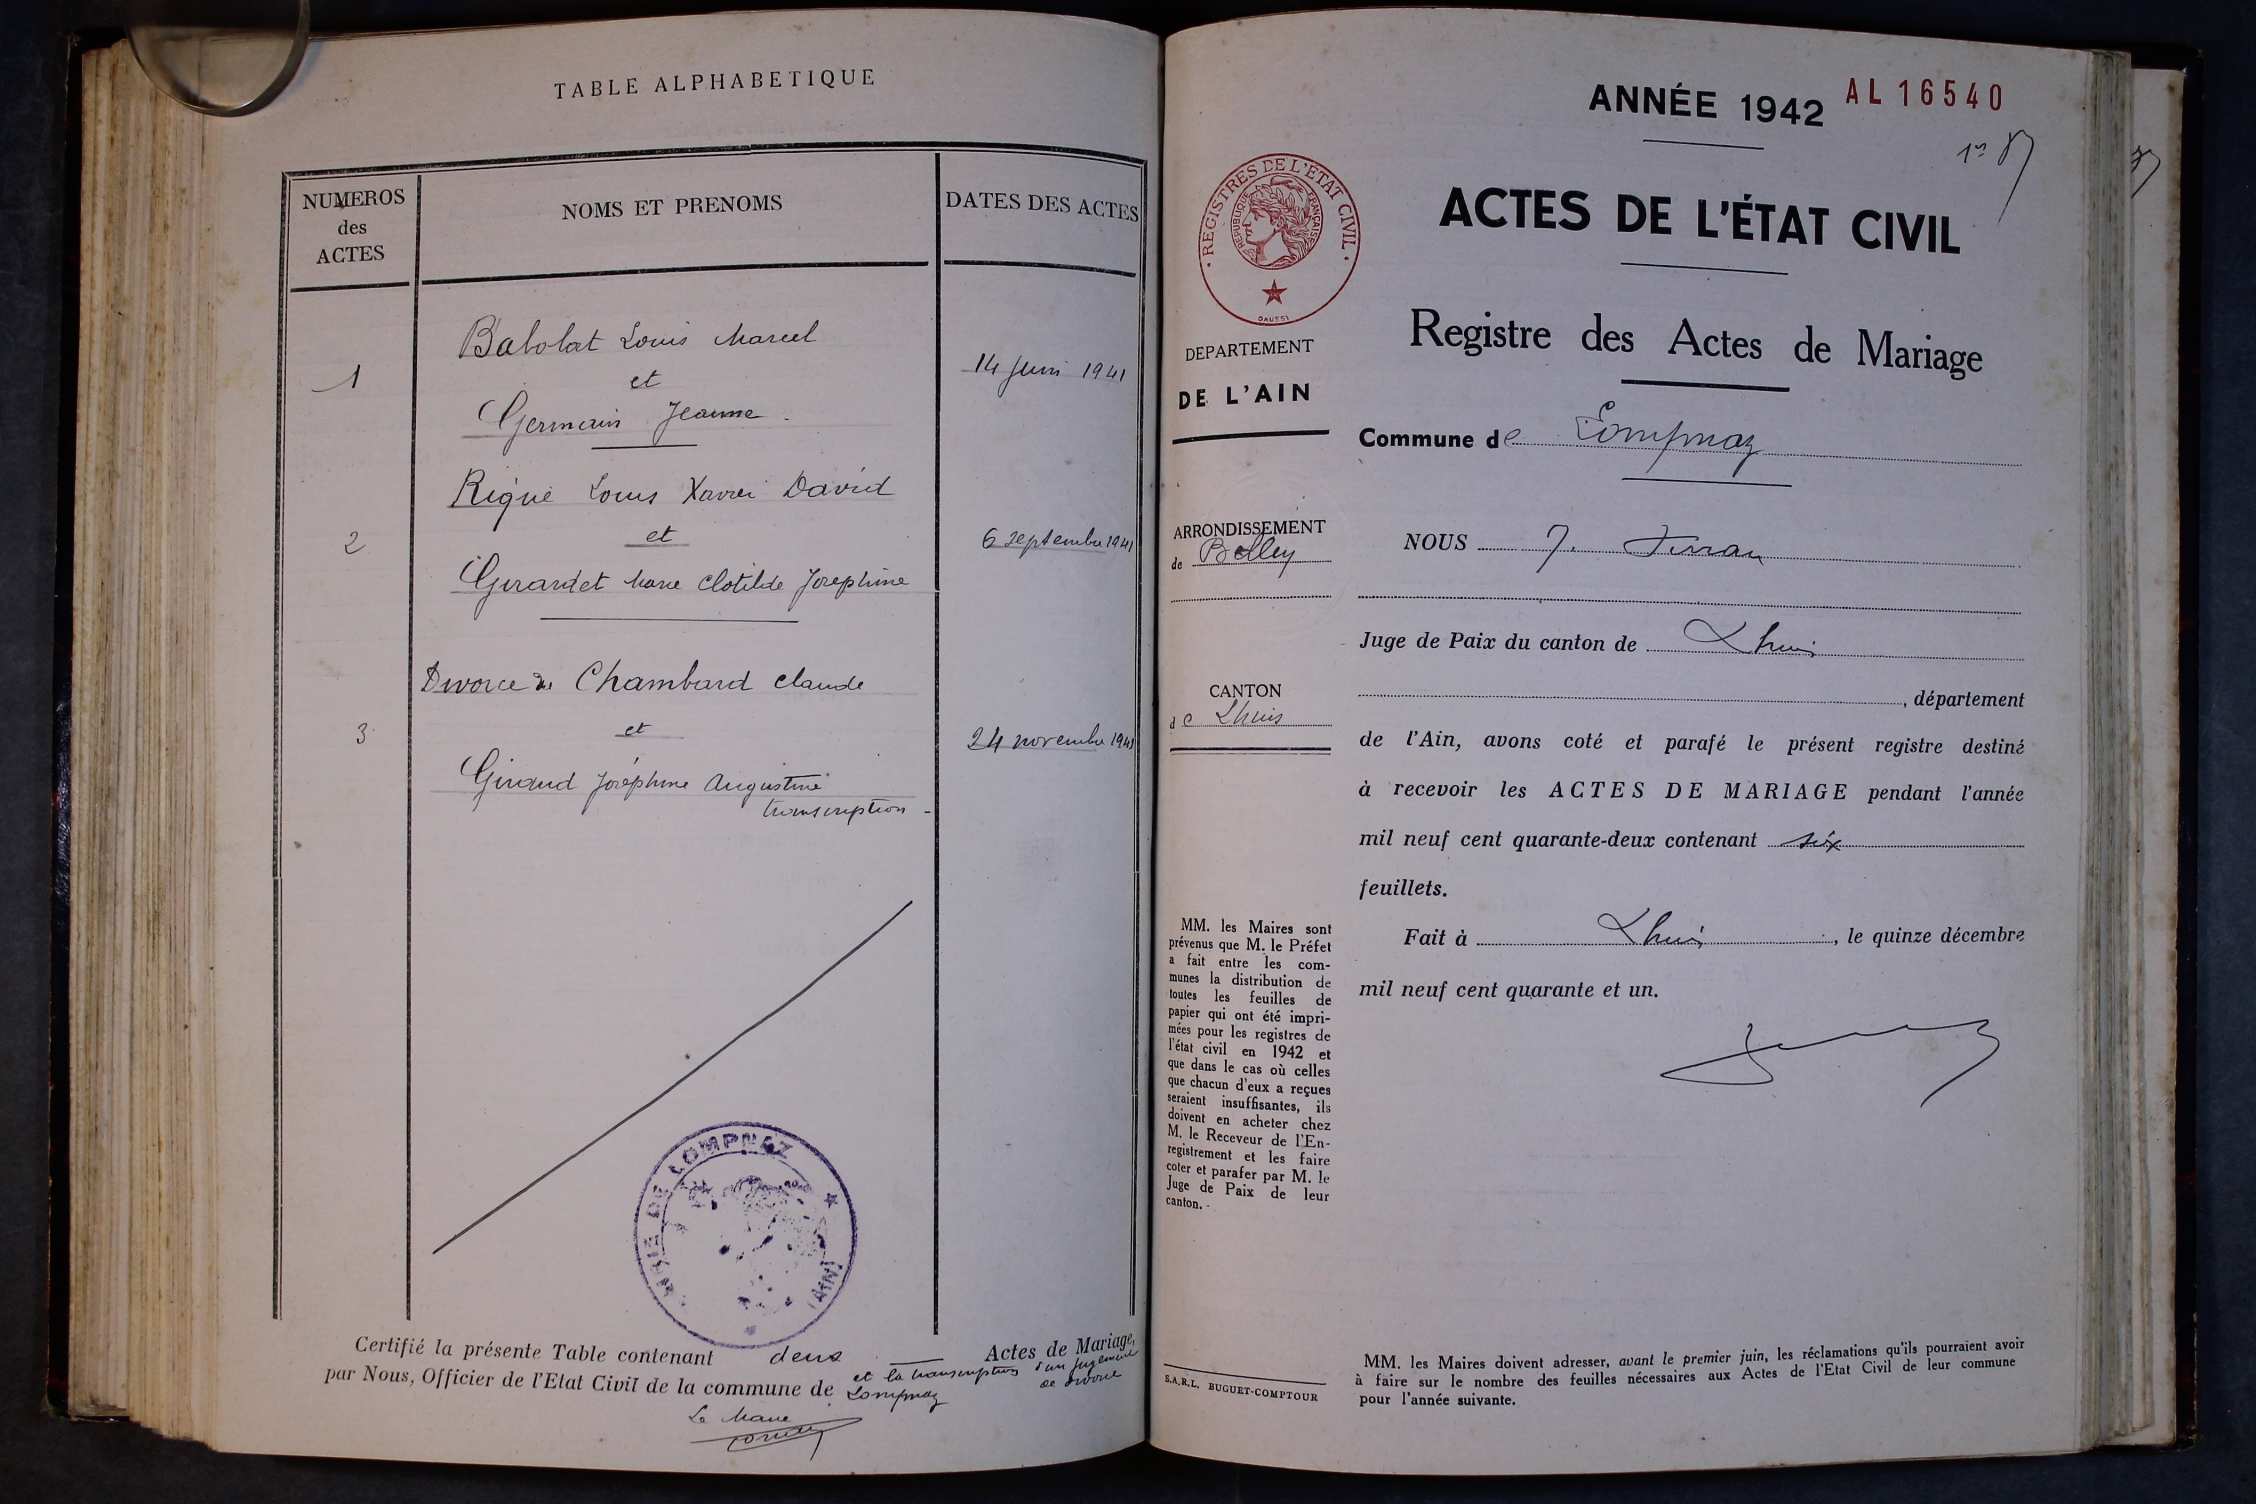 TABLE ALPHABETIQUE
NUMEROS
des
ACTES
NOMS ET PRENOMS
DATES DES ACTES
1
Babolat Louis Marcel
et
Germain Jeanne
14 Juin 1941
2
Rigue Louis Xavier David
et
Girardet Marie Clotilde Josephine
6 septembre 1941
3
Divorce de Chambard Claude
et
Giraud Joséphine Augustine
transcription
24 novembre 1941
MAIRIE DE LOMPNAZ
(AIN)
Certifié la présente Table contenant deux Actes de Mariage,
et la transcription d'un jugement
de divorce
par Nous, Officier de l'Etat Civil de la commune de Lompnaz
Le Maire
ANNÉE 1942
AL 16540
1er
REGISTRES DE L'ÉTAT CIVIL
REPUBLIQUE FRANÇAISE
DAUSSI
ACTES DE L'ÉTAT CIVIL
Registre des Actes de Mariage
DEPARTEMENT
DE L'AIN
ARRONDISSEMENT
de Belley
CANTON
de Lhuis
MM. les Maires sont
prévenus que M. le Préfet
a fait entre les com-
munes la distribution de
toutes les feuilles de
papier qui ont été impri-
mées pour les registres de
l'état civil en 1942 et
que dans le cas où celles
que chacun d'eux a reçues
seraient insuffisantes, ils
doivent en acheter chez
M. le Receveur de l'En-
registrement et les faire
coter et parafer par M. le
Juge de Paix de leur
canton. -
S.A.R.L. BUGUET-COMPTOUR
Commune de Lompnaz
NOUS J.
Juge de Paix du canton de Lhuis
, département
de l'Ain, avons coté et parafé le présent registre destiné
à recevoir les ACTES DE MARIAGE pendant l'année
mil neuf cent quarante-deux contenant six
feuillets.
Fait à Lhuis, le quinze décembre
mil neuf cent quarante et un.
MM. les Maires doivent adresser, avant le premier juin, les réclamations qu'ils pourraient avoir
à faire sur le nombre des feuilles nécessaires aux Actes de l'Etat Civil de leur commune
pour l'année suivante.